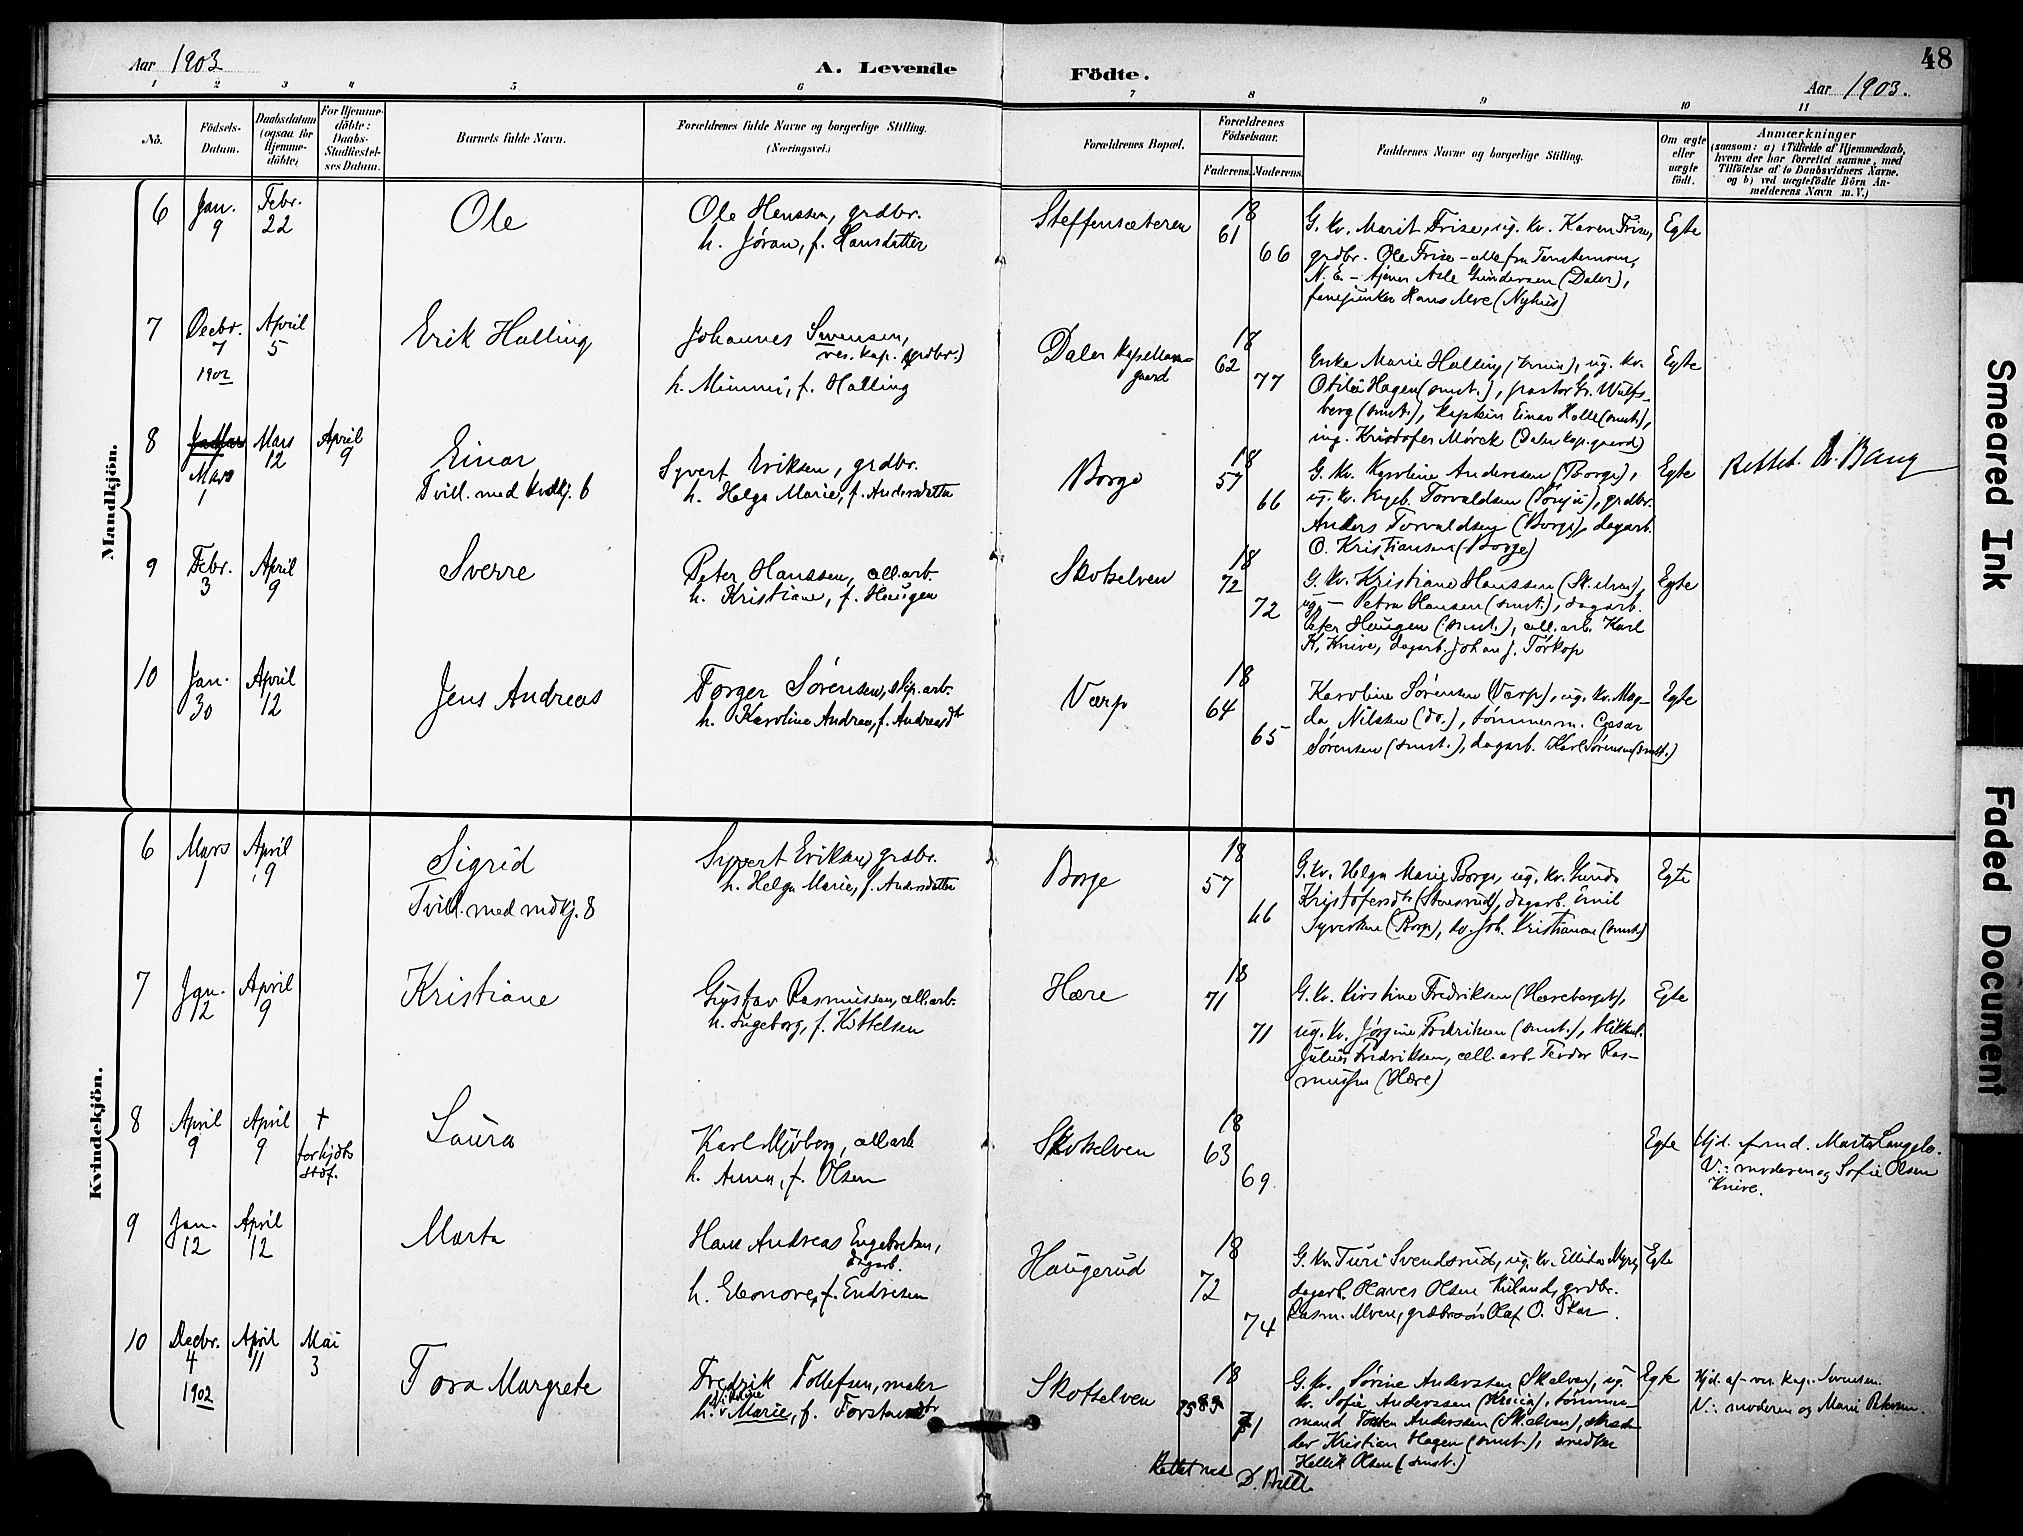 48
Aar 1903
A. Levende
Födte.
Aar 1903.
1 2 3 4 5 6 7 8 9 10 11
No.
Födsels-
Datum.
Daabsdatum
(ogsaa for
Hjemme-
döbte)
For Hjemme-
döbte:
Daabs-
Stadfæstel-
ses Datum.
Barnets fulde Navn.
Forældrenes fulde Navne og borgerlige Stilling.
(Næringsvei.)
Forældrenes Bopæl.
Forældrenes
Födselsaar.
Faderens. Moderens.
Faddernes Navne og borgerlige Stilling.
Om ægte
eller
uægte
födt.
Anmærkninger
(saasom: a) i Tilfælde af Hjemmedaab,
hvem der har forrettet samme, med
Tilföielse af to Daabsvidners Navne.
og b) ved uægtefödte Börn An-
melderens Navn m. V.)
Mandkjön.
6 Jan. 9 Febr. 22
Ole
Ole Hanssen, grdbr.
h. Jøran, f. Hansdatter
Steffensæteren
18 61 66
G. kv. Marit Frise, ug. kv. Karen Frise,
grdbr. Ole Frise - alle fra
N. E. - tjener Asle Gundersen (Daler),
fanejunker Hans Alve (Nyhus)
Egte
7 Decbr. 7 1902 April 5
Erik Halling
Johannes Svensen,
res. kap. (grdbr.)
h. Mimmi, f. Halling
Daler Kapellan-
gaard
18 62 77
Enke Marie Halling, ug. kv.
Otilie Hagen (smst.), pastor Gr. Wulfs-
berg (smst.), kaptein Einar Holle (smst.),
ing. Kristofer Mörck (Daler kap.gaard)
Egte
8 Mars 1 Mars 12 April 9
Einar
Tvill. med kvdkj. 6
Syvert Eriksen, grdbr.
h. Helga Marie, f. Andersdatter
Borge
18 57 66
G. kv. Karoline Anderssen (Borge),
ug. kv. Ingeb. Torvaldsen, grdbr.
Anders Torvaldsen (Borge), dagarb.
O. Kristiansen (Borge)
Egte
Rettet. A. Bang
9 Febr. 3 April 9
Sverre
Peter Hanssen, cell.arb.
h. Kristiane, f. Haugen
Skotselven
18 72 72
G. kv. Kristiane Hanssen (Sk.elven),
ug. - Petra Hansen (smst.), dagarb.
Peter Haugen (smst.), cell. arb. Karl
K. Knive, dagarb. Johan J. Torkop
Egte
10 Jan. 30 April 12
Jens Andreas
Torger Sørensen, slip.arb.
h. Karoline Andrea, f. Andreasdtr
Værp
18 64 65
Karoline Sørensen (Værp), ug. kv. Mag-
da Nilssen (do.), tømmerm. Cæsar
Sørensen (smst.), dagarb. Karl Sørensen (smst.)
Egte
Kvindekjön.
6 Mars 1 April 9
Sigrid
Tvill. med mdkj. 8
Syvert Eriksen, grdbr.
h. Helga Marie, f. Andersdatter
Borge
18 57 66
G. kv. Helga Marie Borge, ug. kv. Gunda
Kristofersdtr, dagarb. Emil
Syvertsen (Borge), do. Joh. Kristiansen (smst.)
Egte
7 Jan. 12 April 9
Kristiane
Gustav Rasmussen, cell.arb.
h. Ingeborg, f. Kittelsen
Hære
18 71 71
G. kv. Kirstine Fredriksen (Hæreberget),
ug. kv. Jørgine Fredriksen (smst.),
Julius Fredriksen, cell. arb. Teodor Ras-
mussen (Hære)
Egte
8 April 9 April 9 † før hjdbs stdf.
Laura
Karl Mjøberg, cell.arb
h. Anna, f. Olsen
Skotselven
18 63 69
Egte
Hjd. af md. Marta Langelo.
V.: moderen og Sofie Olsen
Knive.
9 Jan. 12 April 12
Marta
Hans Andreas Engebretsen,
dagarb.
h. Eleonore, f. Endresen
Haugerud
18 72 74
G. kv. Turi Svendsrud, ug. kv. Ellida Myre,
dagarb. Olaves Olsen, grdbr.
Rasm. Alveren, grdbrsøn Olaf O. Skar.
Egte
10 Decbr. 4 1902 April 11 Mai 3
Tora Margrete
Fredrik Tollefsen, maler
h. Marie, f. Torstensdtr
Skotselven
18 75 71
G. kv. Sørine Anderssen (Sk.elven), ug.
kv. Sofie Anderssen (Knive), tømmer-
mand Torsten Anderssen (Sk.elven), skræd-
der Kristian Hagen (smst.), smedsv.
Kittil Olsen (smst.)
Egte
Hjd. af res. kap. Svensen.
V.: moderen og Marie Petersen.
Rettet ved
Smeared Ink
Faded Document